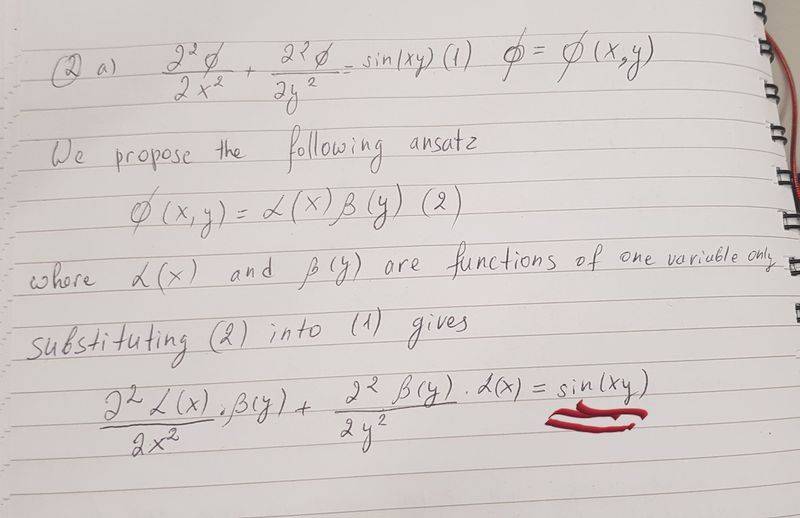 ② a) ∂²ϕ/∂x² + ∂²ϕ/∂y² = sin(xy) (1) ϕ = ϕ(x,y)
We propose the following ansatz
ϕ(x,y) = α(x) β(y) (2)
where α(x) and β(y) are functions of one variable only
substituting (2) into (1) gives
∂²α(x)/∂x² · β(y) + ∂²β(y)/∂y² · α(x) = sin(xy)